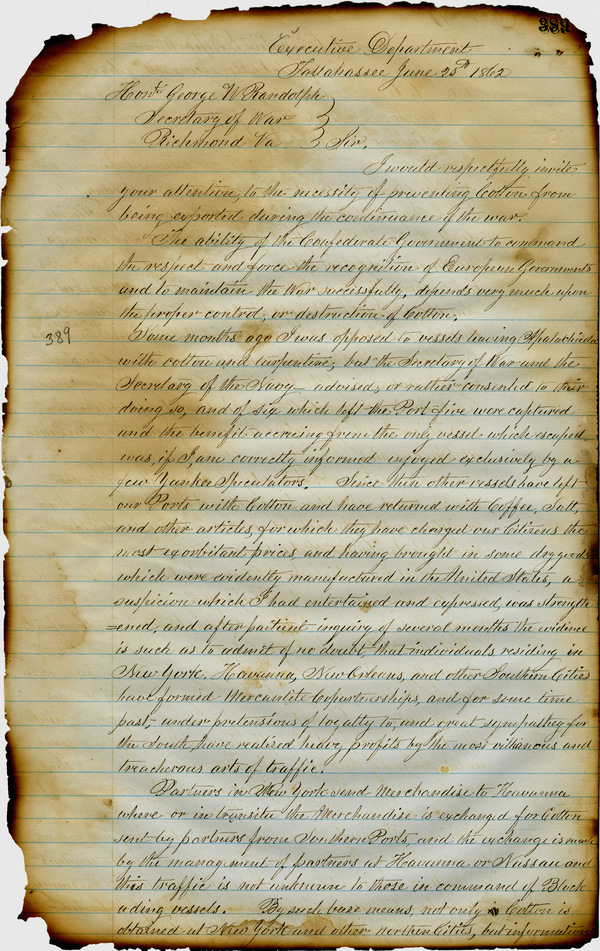 333
Executive Department
Tallahassee June 25th 1862
Honble George W Randolph
Secretary of War
Richmond Va Sir,
I would respectfully invite
your attention, to the necessity of preventing Cotton from
being exported during the continuance of the war.
The ability of the Confederate Government to command
the respect and force the recognition of European Governments
and to maintain the War successfully, depends very much upon
the proper control, or destruction of Cotton.
389
Some months ago I was opposed to vessels leaving Apalachicola
with cotton and turpentine, but the Secretary of War and the
Secretary of the Navy advised, or rather consented to their
doing so, and of six which left the Port five were captured
and the benefit accruing from the only vessel which escaped
was, if I am correctly informed enjoyed exclusively by a
few Yankee Speculators. Since then other vessels have left
our Ports with Cotton and have returned with Coffee, Salt,
and other articles, for which they have charged our Citizens the
most exorbitant prices and having brought in some dry goods
which were evidently manufactured in the United States, a
suspicion which I had entertained and expressed, was strength
=ened, and after patient inquiry of several months the evidence
is such as to admit of no doubt, that individuals residing in
New York, Havanna, New Orleans, and other Southern Cities
have formed Mercantile Copartnerships, and for some time
past, under pretensions of loyalty to, and great sympathy for
the South, have realised heavy profits by the most villianous and
treacherous arts of traffic.
Partners in New York send Merchandise to Havanna
where or in transitu the Merchandise is exchanged for Cotton
sent by partners from Southern Ports and the exchange is made
by the management of partners at Havanna or Nassau and
this traffic is not unknown to those in command of Block
ading vessels. By such base means, not only Cotton is
obtained at New York and other northern Cities, but information